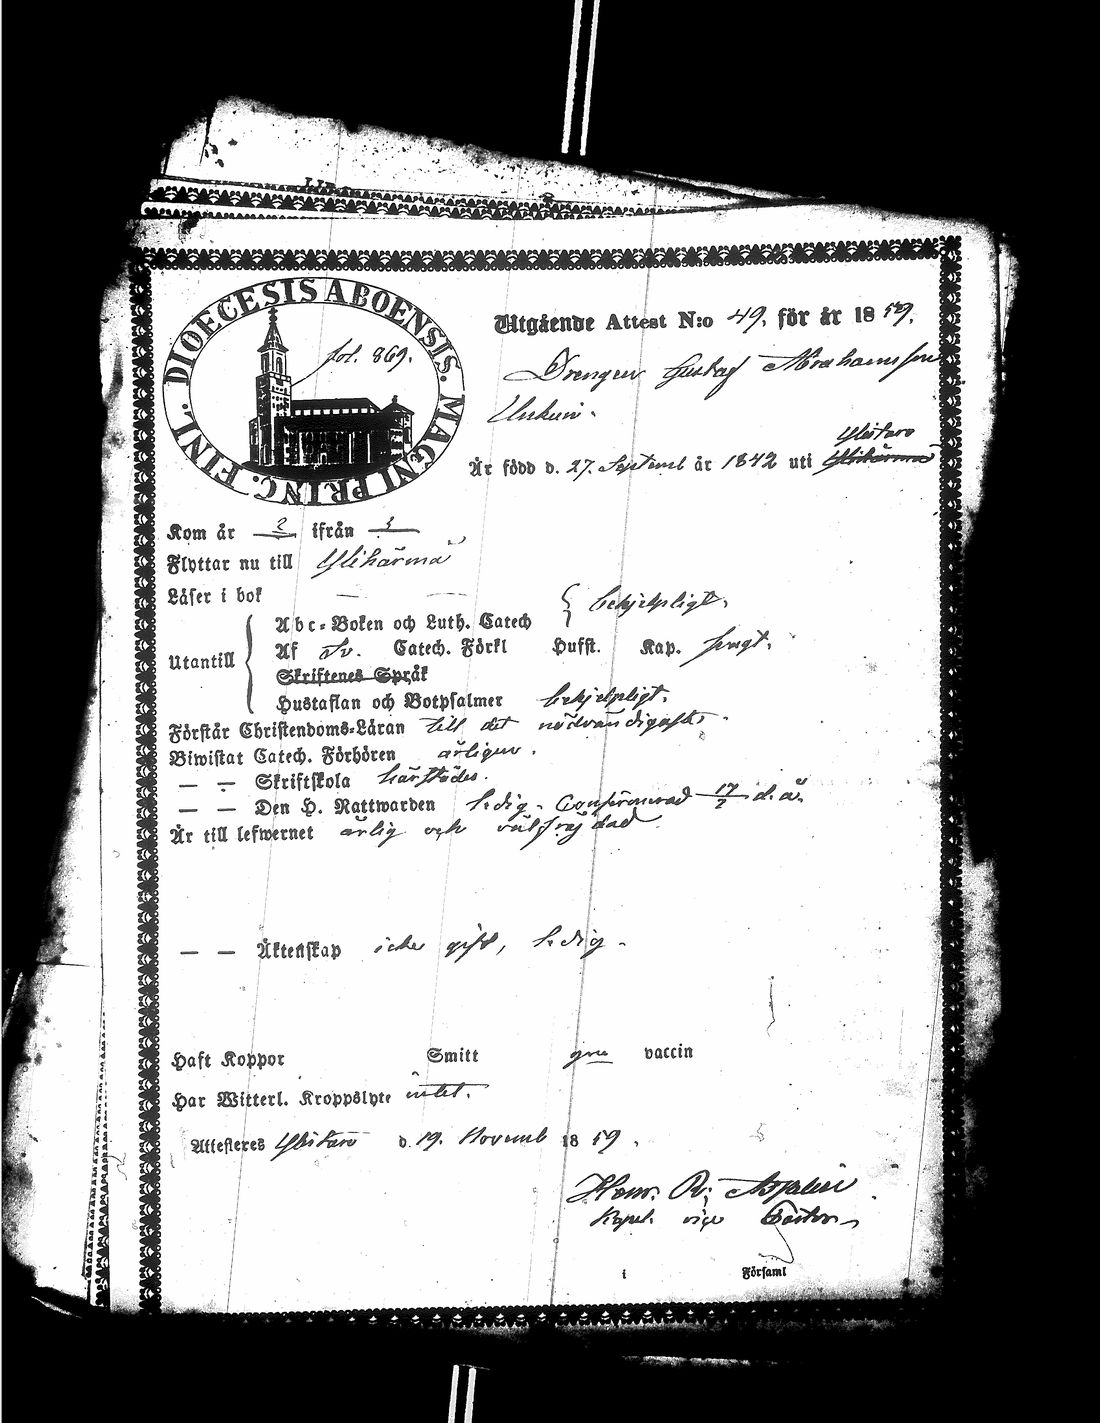 DIOECESIS ABOENSIS. MAGNI PRINC. FINL.
fol. 869.
Utgående Attest N:o 49. för år 1859.
Drengen Gustaf Abrahamsson
Är född d. 27. Septemb år 1842 uti Ylistaro Ylihärmä
Kom år ifrån
Flyttar nu till Ylihärmä
Läser i bok — — behjelpligt.
Abc-Boken och Luth. Catech
Utantill Af Sv. Catech. Förkl Husst. Kap. svagt.
Skriftenes Språk
Hustaflan och Botpsalmer behjelpligt.
Förstår Christendoms-Läran till det nödvändigaste.
Biwistat Catech. Förhören årligen.
— — Skriftskola härstädes.
— — Den H. Nattwarden ledig. Confirmerad 17/7 d. å.
Är till lefwernet ärlig och välfräjdad
— — Äktenskap icke gift, ledig.
Haft Koppor Smitt gm vaccin
Har Witterl. Kroppslyte intet.
Attesteres Ylistaro d. 19. Novemb 1859.
Kapel. vice Pastor
i Församl